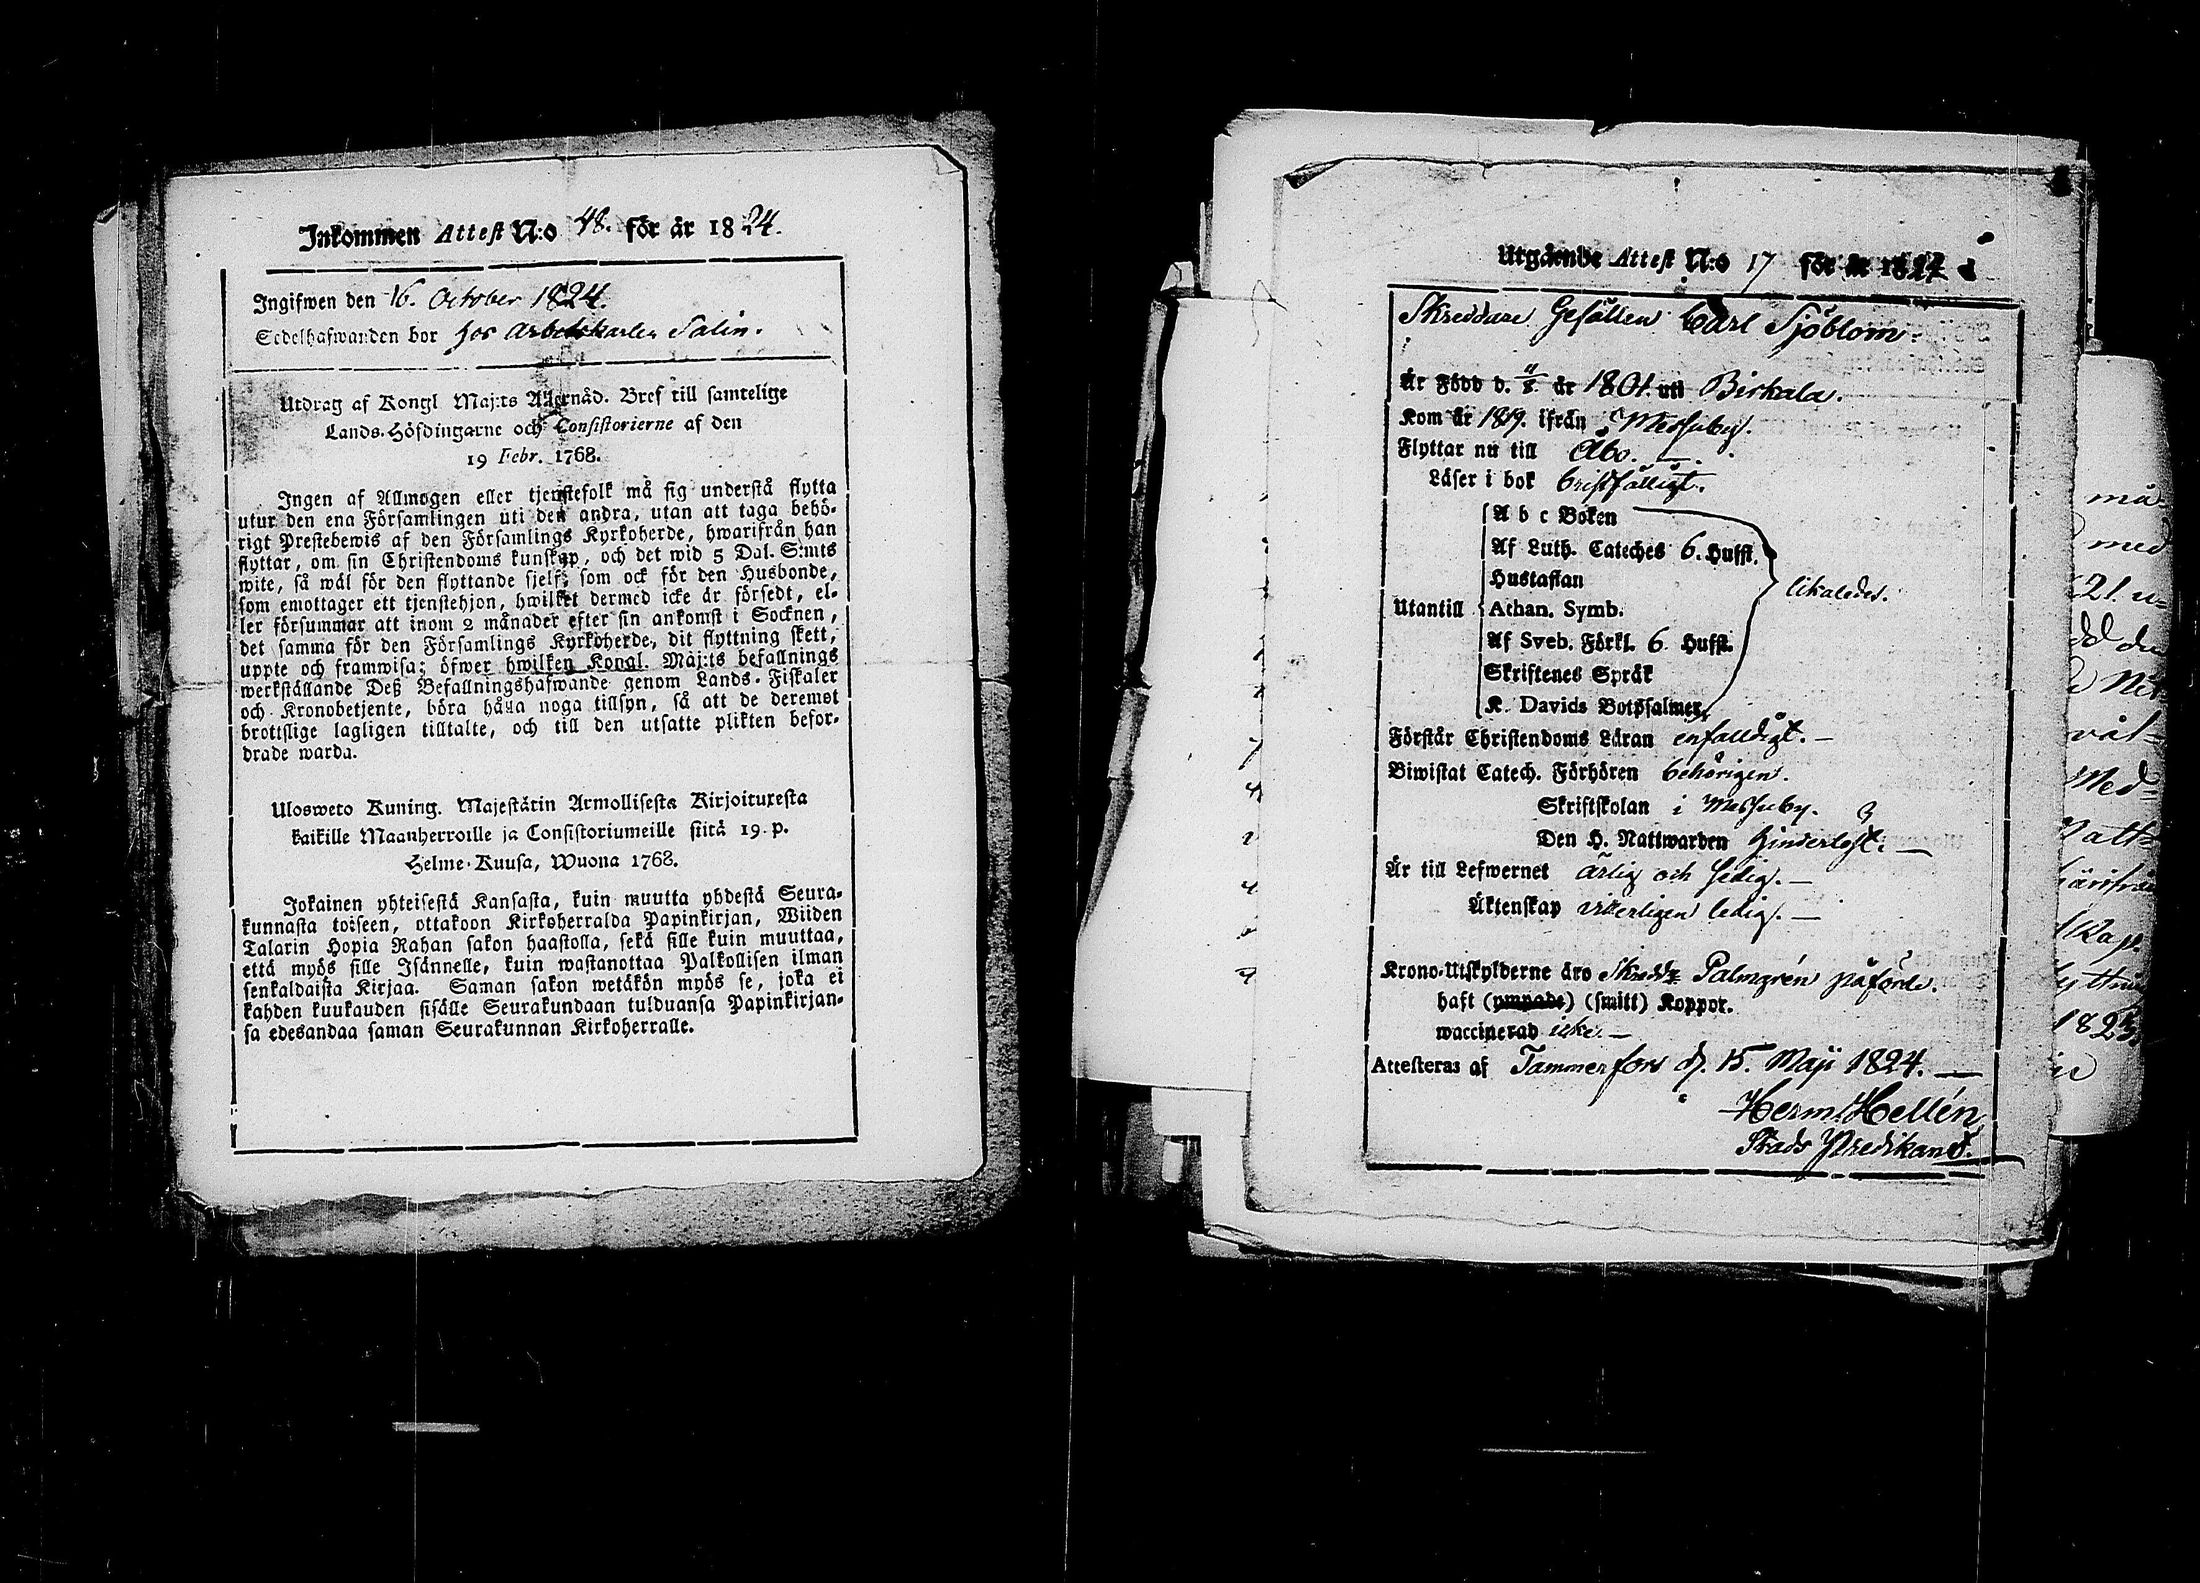 Inkommen Attest N:o 48. för år 1824.
Ingifwen den 16. October 1824.
Sedelhafwanden bor hos Arbetskarlen Salin.
Utdrag af Kongl Maj:ts Allernåd. Bref till samtelige
Lands-Höfdingarne och Consistorierne af den
19 Febr. 1768.
Ingen af Allmogen eller tjenstefolk må sig understå flytta
utur den ena Församlingen uti den andra, utan att taga behö-
rigt Prestebewis af den Församlings Kyrkoherde, hwarifrån han
flyttar, om sin Christendoms kunskap, och det wid 5 Dal. S:mts
wite, så wäl för den flyttande sjelf, som ock för den Husbonde,
som emottager ett tjenstehjon, hwilket dermed icke är försedt, el-
ler försummar att inom 2 månader efter sin ankomst i Socknen,
det samma för den Församlings Kyrkoherde, dit flyttning skett,
uppte och framwisa; öfwer hwilken Kongl. Maj:ts befallnings
werkställande Deß Befallningshafwande genom Lands-Fiskaler
och Kronobetjente, böra hålla noga tillsyn, så att de deremot
brottslige lagligen tilltalte, och till den utsatte plikten befor-
drade warda.
Ulosweto Kuning. Majestätin Armollisesta Kirjoituxesta
kaikille Maanherroille ja Consistoriumeille siitä 19. p.
Helme-Kuusa, Wuona 1768.
Jokainen yhteisestä Kansasta, kuin muutta yhdestä Seura-
kunnasta toiseen, ottakoon Kirkoherralda Papinkirjan, Wiiden
Talarin Hopia Rahan sakon haastolla, sekä sille kuin muuttaa,
että myös sille Isännelle, kuin wastanottaa Palkollisen ilman
senkaldaista Kirjaa. Saman sakon wetäkön myös se, joka ei
kahden kuukauden sisälle Seurakundaan tulduansa Papinkirjan-
sa edesandaa saman Seurakunnan Kirkoherralle.
Utgående Attest N:o 17 för år 1824
Skreddare Gesällen Carl Sjöblom.
Är Född d. 11/8 år 1801. uti Birkala.
Kom år 1819. ifrån Messuby.
Flyttar nu till Åbo. —
Läser i bok bristfälligt.
A b c Boken
Af Luth. Cateches 6. Hufst.
Hustaflan
Utantill Athan. Symb. likaledes.
Af Sveb. Förkl. 6. Hufst.
Skriftenes Språk
K. Davids Botpsalmer
Förstår Christendoms Läran enfaldigt. —
Biwistat Catech. Förhören behörigen.
Skriftskolan i Messuby.
Den H. Nattwarden hinderlöst. —
Är till Lefwernet ärlig och sedig. —
Äktenskap vitterligen ledig. —
Krono-Utskylderne äro Skredd: Palmgrén påförde.
haft (ympade) (smitt) Koppor.
waccinerad icke. —
Attesteras af Tammerfors d. 15. Maji 1824. —
Herm. Hellén
Stads Predikant.
må-
med
21. u-
de
väl-
Med-
1823